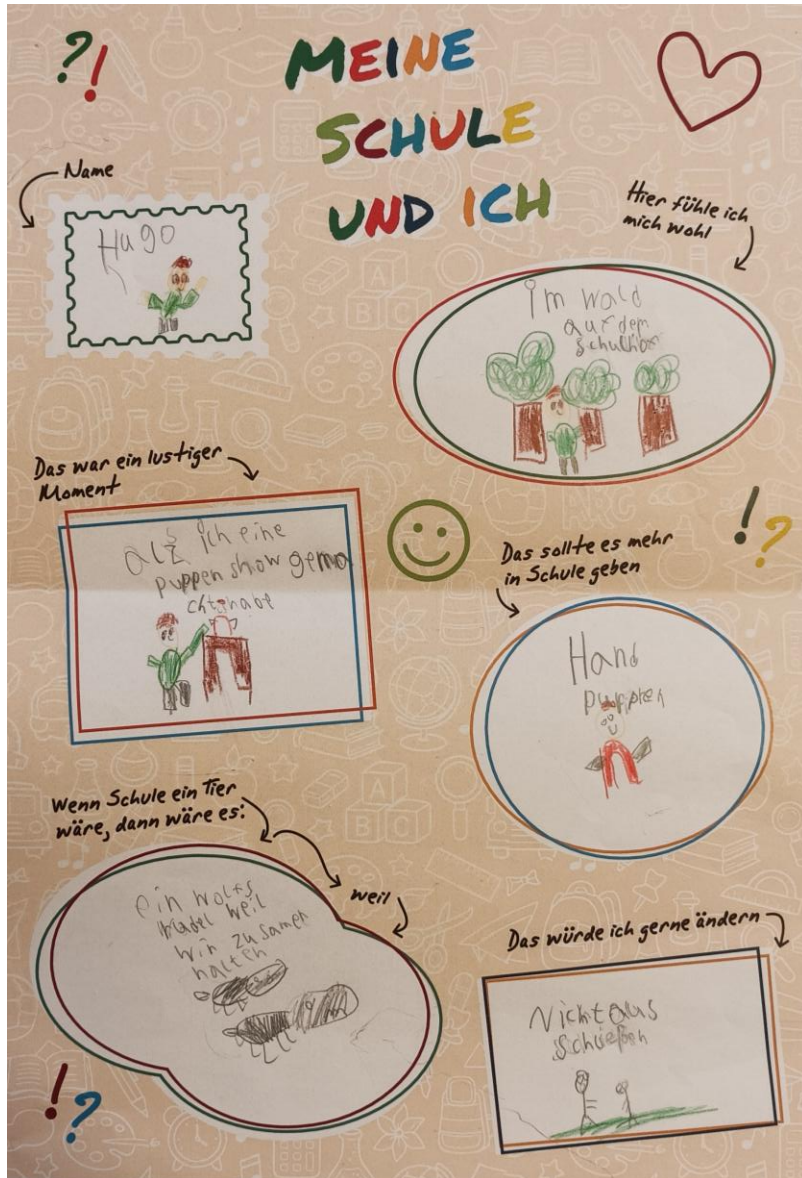 ?!
MEINE
SCHULE
UND ICH
Name
Hugo
Hier fühle ich
mich wohl
im wald
auf dem
schulhof
Das war ein lustiger
Moment
als ich eine
puppen show gema
cht habe
!?
Das sollte es mehr
in Schule geben
Hand
puppen
Wenn Schule ein Tier
wäre, dann wäre es:
weil
ein wolfs
weil
wir zusamen
halten
Das würde ich gerne ändern
Nicht aus
schließen
!?